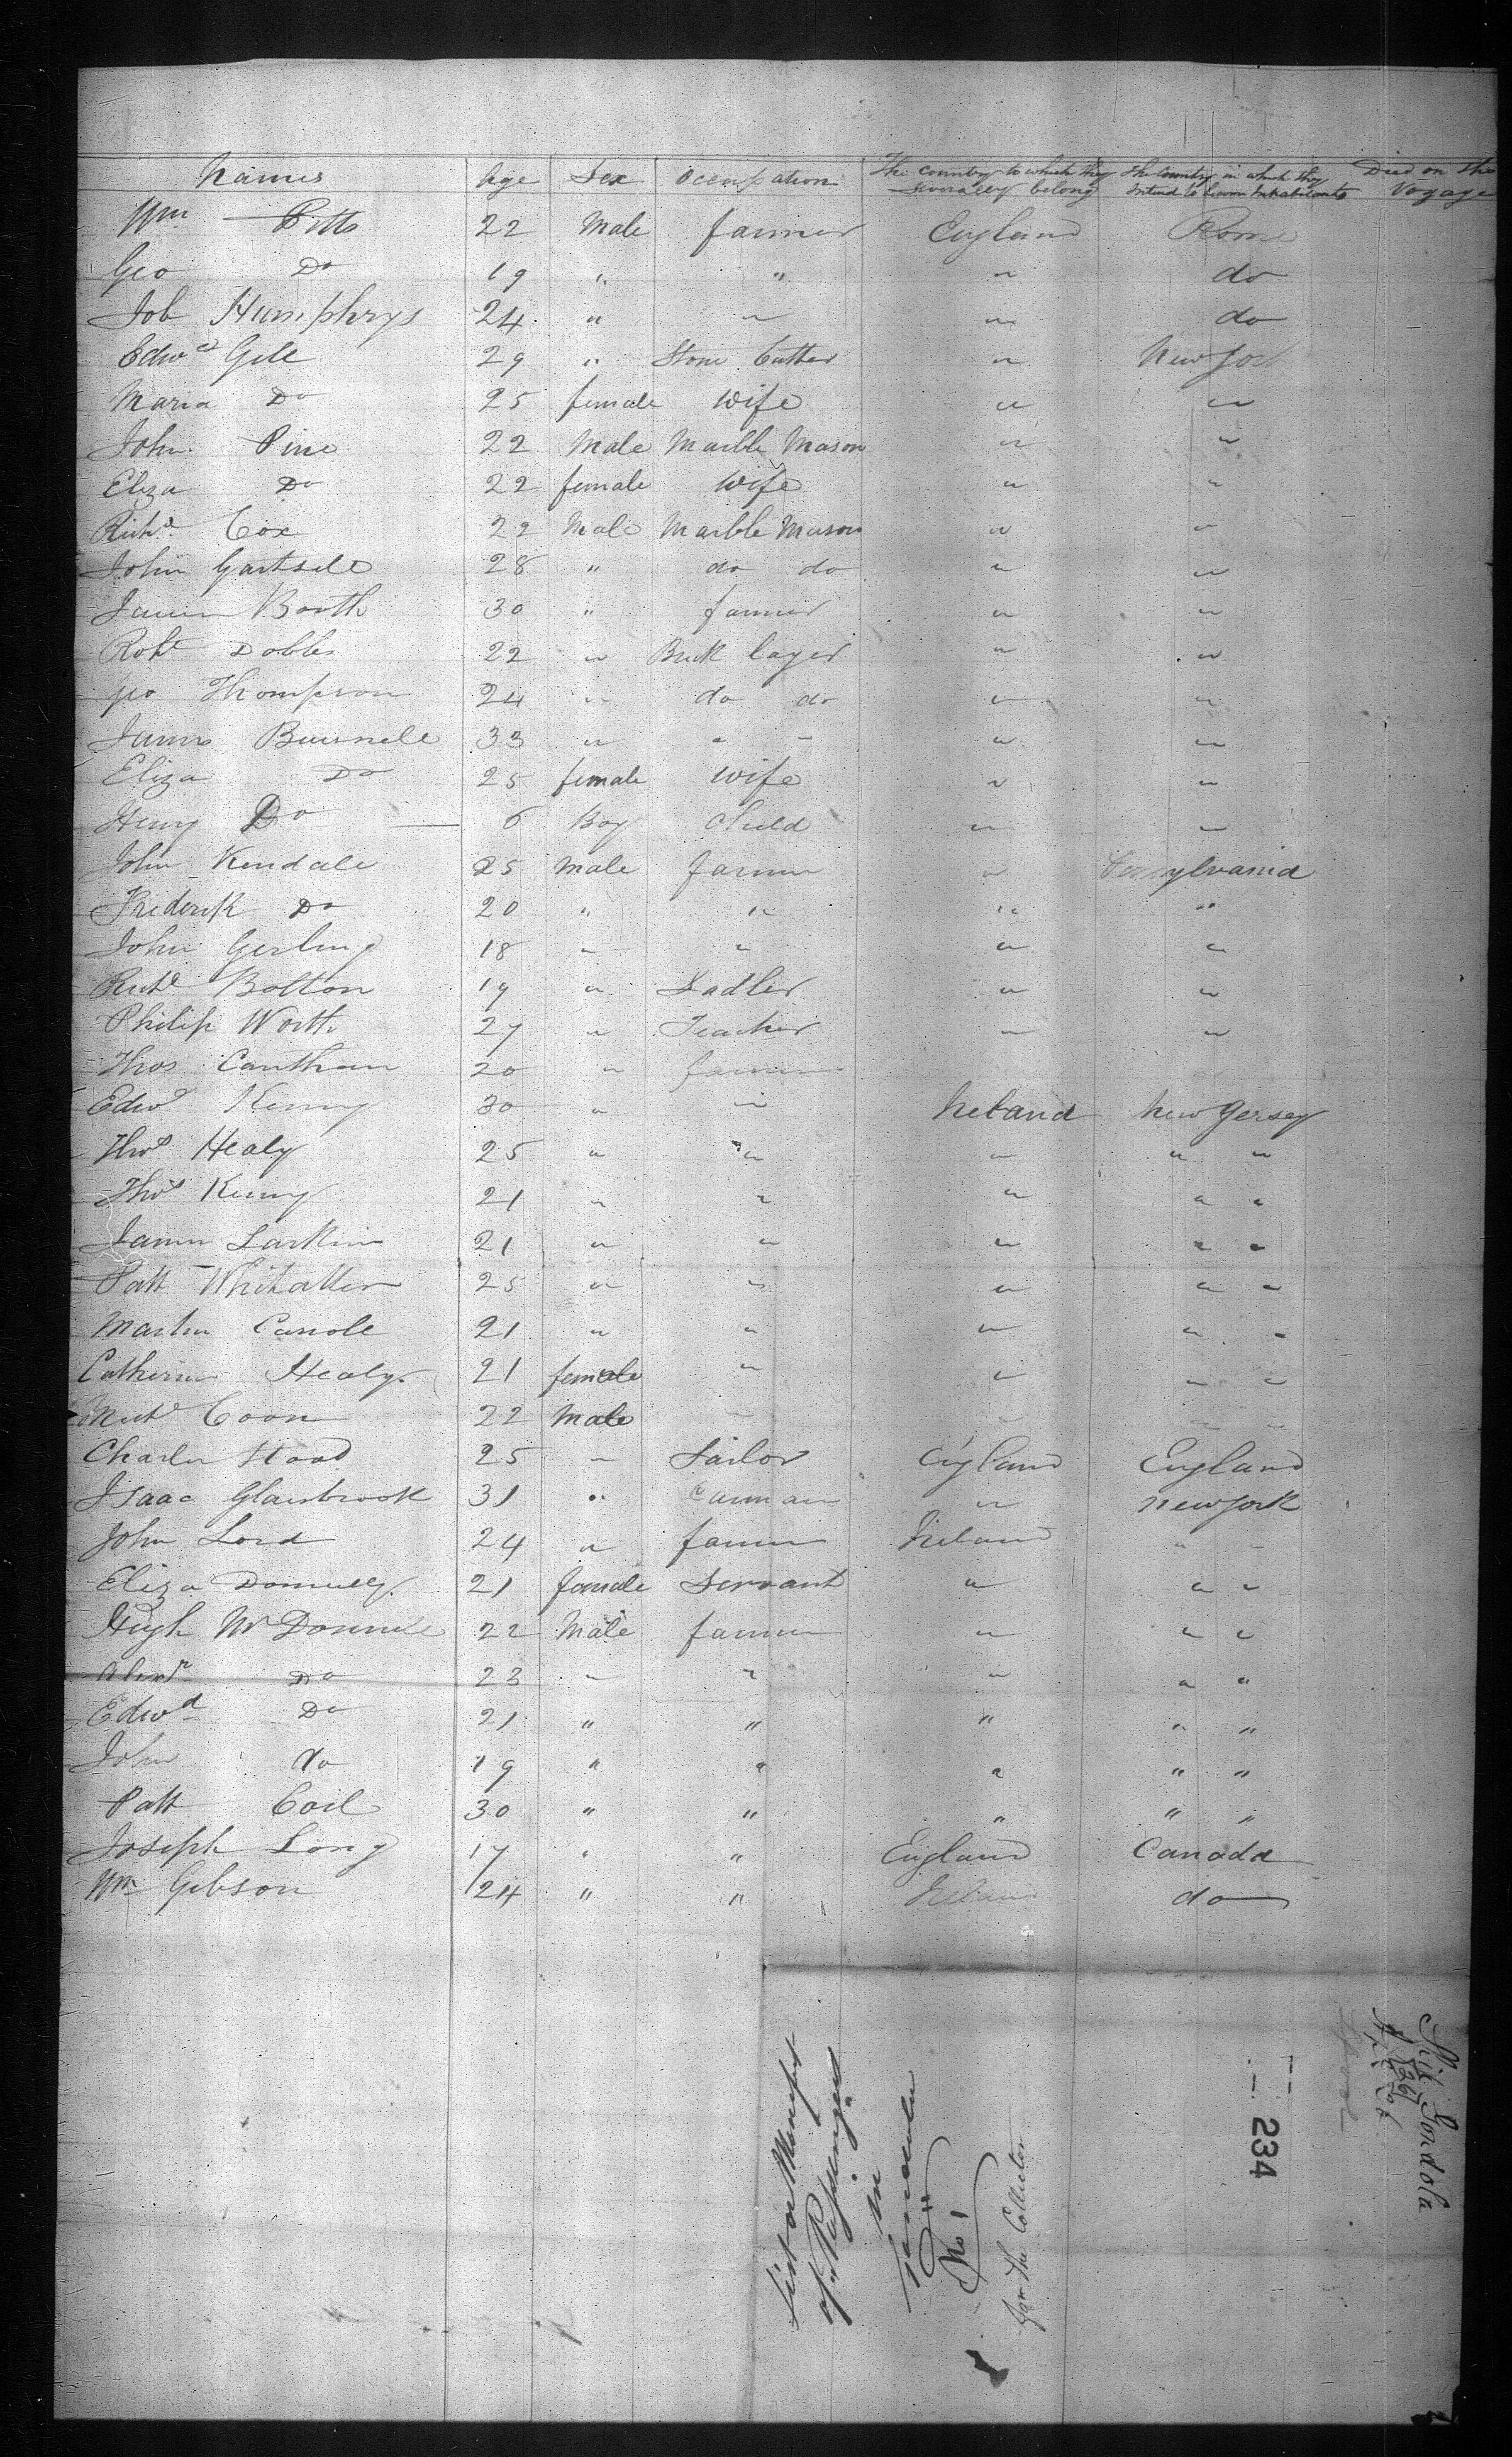 Names Age Sex Occupation The Country to which they severally belong The Country in which they intend to becom Inhabitants Died on the Voyage
Wm Pitts 22 Male farmer England Rome
Geo Do 19 " " " do
Job Humphrys 24 " " " do
Edwd Gill 29 " Stone Cutter " New York
Maria Do 25 female wife " "
John Pine 22 Male Marble Mason " "
Eliza Do 22 female wife " "
Richd Cox 22 Male Marble Mason " "
John Gartsell 28 " do do " "
James Booth 30 " farmer " "
Robt Dobbs 22 " Brick layer " "
Geo Thompson 24 " do do " "
James Burnell 33 " " " " "
Eliza Do 25 female wife " "
Henry Do 6 Boy Child " "
John Kendall 25 Male farmer " Pensylvania
Frederik Do 20 " " " "
John Gerling 18 " " " "
Richd Bolton 19 " Sadler " "
Philip Worth 27 " Teacher " "
Thos Cantham 20 " farmer
Edwd Kenny 30 " " Ireland New Jersey
Thos Healy 25 " " " " "
Thos Kenny 21 " " " " "
James Larkin 21 " " " " "
Patt Whitaller 25 " " " " "
Martin Carrole 21 " " " " "
Catherine Healy 21 female " " " "
Michl Coon 22 Male " " " "
Charles Hood 25 " Sailor England England
Isaac Glaisbrook 31 " Carman " New York
John Lord 24 " farmer Ireland " "
Eliza Donnelly 21 female Servant " " "
Hugh McDonnele 22 Male farmer " " "
Alexr Do 23 " " " " "
Edwd Do 21 " " " " "
John do 19 " " " " "
Patt Coil 30 " " " " "
Joseph Long 17 " " England Canada
Wm Gibson 24 " " Ireland do
List or Manifest
of Passengers
in
No 1
for the Collector
234
Ship Gondola